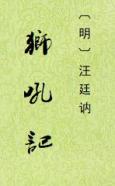 〔明〕汪廷讷
獅吼記